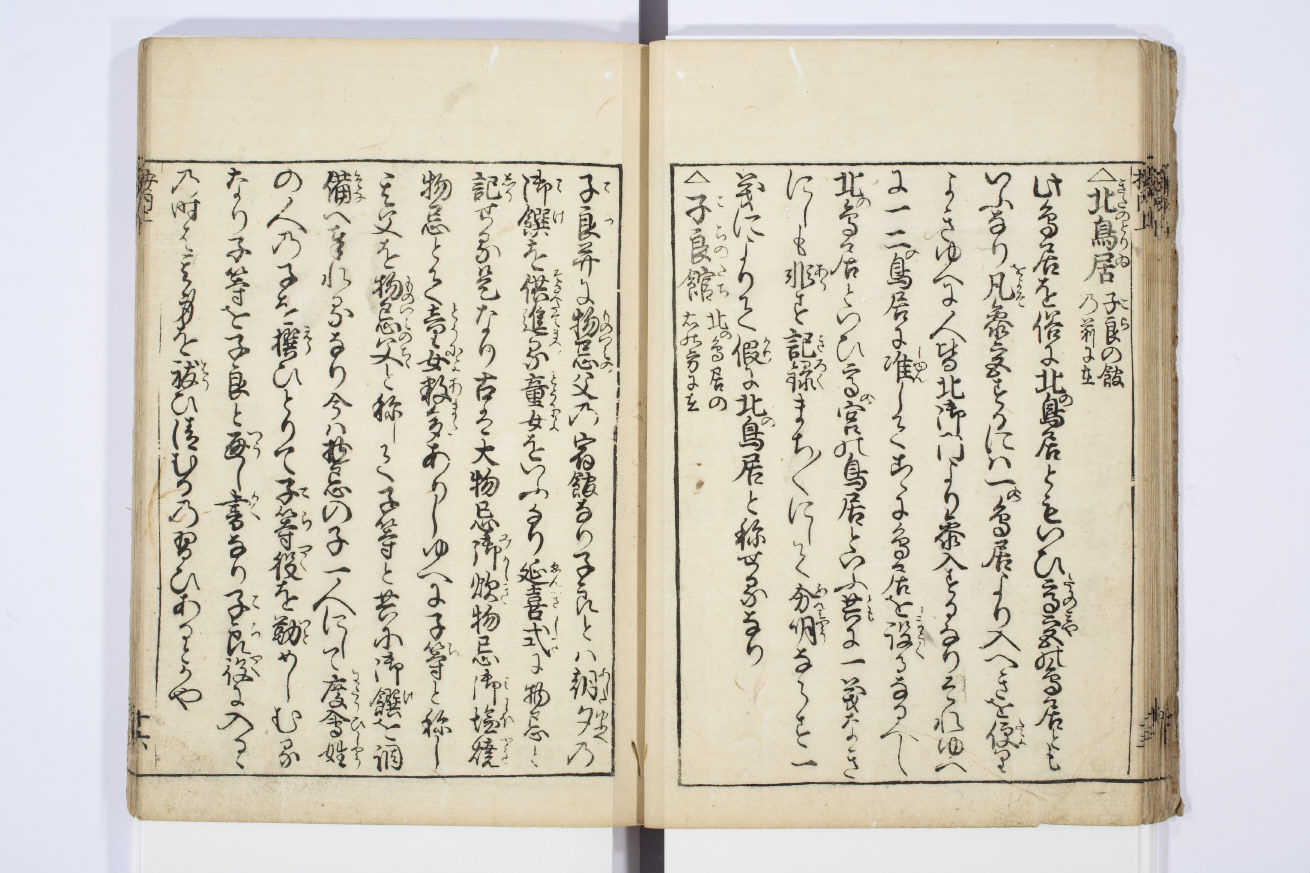 △北鳥居 子良の館の前に在
此鳥居を俗に北鳥居ともいひ高宮の鳥居とも
いふなり凡参宮するには一鳥居より入へきを便り
よきゆへに人皆北御門より参入するなりそれゆへ
に一二鳥居に准してこゝに鳥居を設るなるへし
北鳥居といひ高宮の鳥居といふ共に一義なき
にしも非す記録まち〳〵にして分明ならす一
義によりて假に北鳥居と称するなり
△子良館 北鳥居の右の方に在
子良并に物忌父の宿館なり子良とは朝夕の
御饌を供進る童女をいふなり延喜式に物忌と
記するは是なり古は大物忌御炊物忌御塩焼
物忌とて童女数多ありしゆへに子等と称し
其父を物忌父と称して子等と共に御饌を調
備へ奉れるなり今は物忌の子一人にして度会姓
の人の子を撰ひとりて子等役を勤めしむる
なり子等を子良と通し書なり子良役に入る
の時はその身を祓ひ清むるの習ひあるとかや